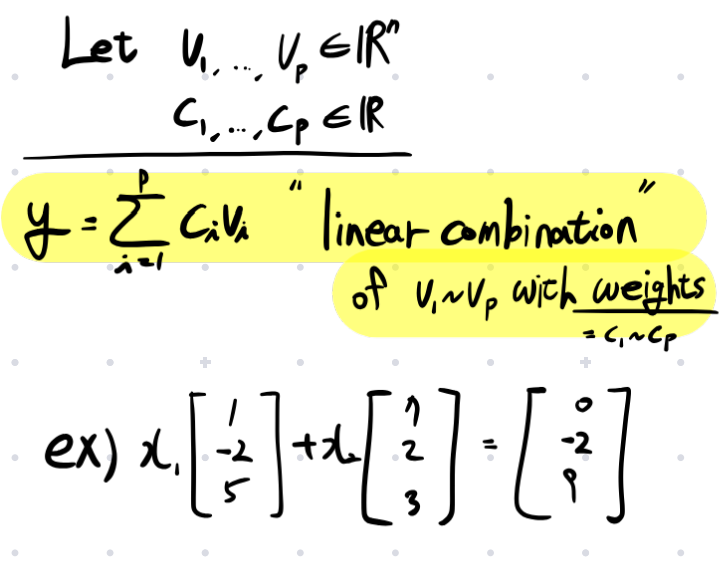 Let v₁, ..., vₚ ∈ ℝⁿ
c₁, ..., cₚ ∈ ℝ
y = ∑ᵢ₌₁ᵖ cᵢvᵢ "linear combination"
of v₁~vₚ with weights
= c₁~cₚ
ex) x₁ [1 -2 5] + x₂ [7 2 3] = [0 -2 9]